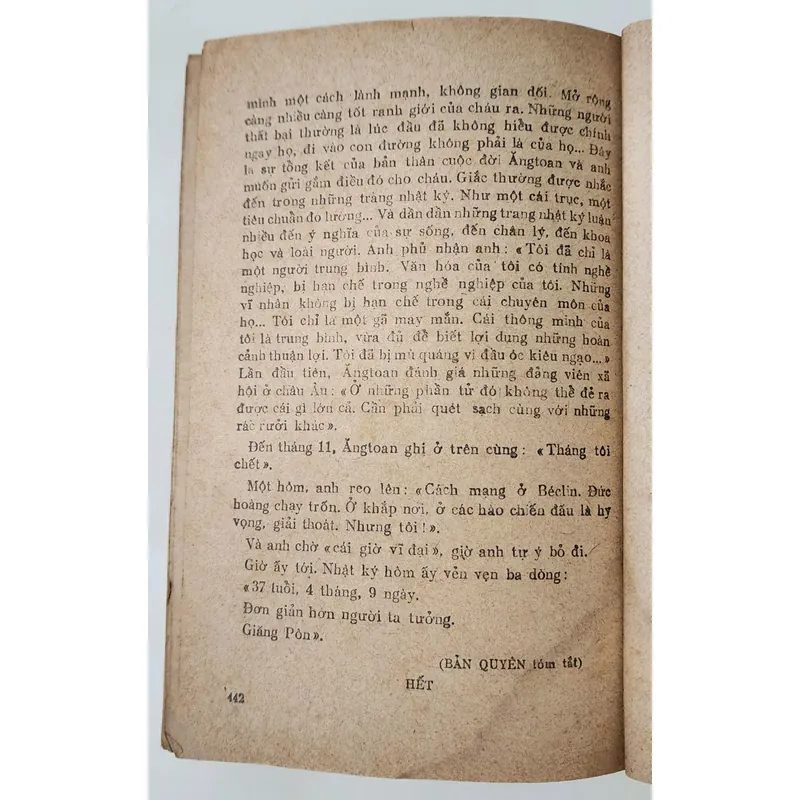 mình một cách lành mạnh, không gian dối. Mở rộng
càng nhiều càng tốt ranh giới của cháu ra. Những người
thất bại thường là lúc đầu đã không hiểu được chính
ngay họ, đi vào con đường không phải là của họ... Đây
là sự tổng kết của bản thân cuộc đời Ăngtoan và anh
muốn gửi gắm điều đó cho cháu. Giấc thường được nhắc
đến trong những trang nhật ký. Như một cái trục, một
tiêu chuẩn đo lường... Và dần dần những trang nhật ký luận
nhiều đến ý nghĩa của sự sống, đến chân lý, đến khoa
học và loài người. Anh phủ nhận anh : «Tôi đã chỉ là
một người trung bình. Văn hóa của tôi có tính nghề
nghiệp, bị hạn chế trong nghề nghiệp của tôi. Những
vĩ nhân không bị hạn chế trong cái chuyên môn của
họ... Tôi chỉ là một gã may mắn. Cái thông minh của
tôi là trung bình, vừa đủ để biết lợi dụng những hoàn
cảnh thuận lợi. Tôi đã bị mù quáng vì đầu óc kiêu ngạo...»
Lần đầu tiên, Ăngtoan đánh giá những đảng viên xã
hội ở châu Âu : «Ở những phần tử đó không thể đẻ ra
được cái gì lớn cả. Cần phải quét sạch cùng với những
rác rưởi khác».
Đến tháng 11, Ăngtoan ghi ở trên cùng : «Tháng tôi
chết».
Một hôm, anh reo lên : «Cách mạng ở Béclin. Đức
hoàng chạy trốn. Ở khắp nơi, ở các hào chiến đấu là hy
vọng, giải thoát. Nhưng tôi !».
Và anh chờ «cái giờ vĩ đại», giờ anh tự ý bỏ đi.
Giờ ấy tới. Nhật ký hôm ấy vẻn vẹn ba dòng :
«37 tuổi, 4 tháng, 9 ngày.
Đơn giản hơn người ta tưởng.
Giăng Pôn».
(BẢN QUYÊN tóm tắt)
HẾT
442